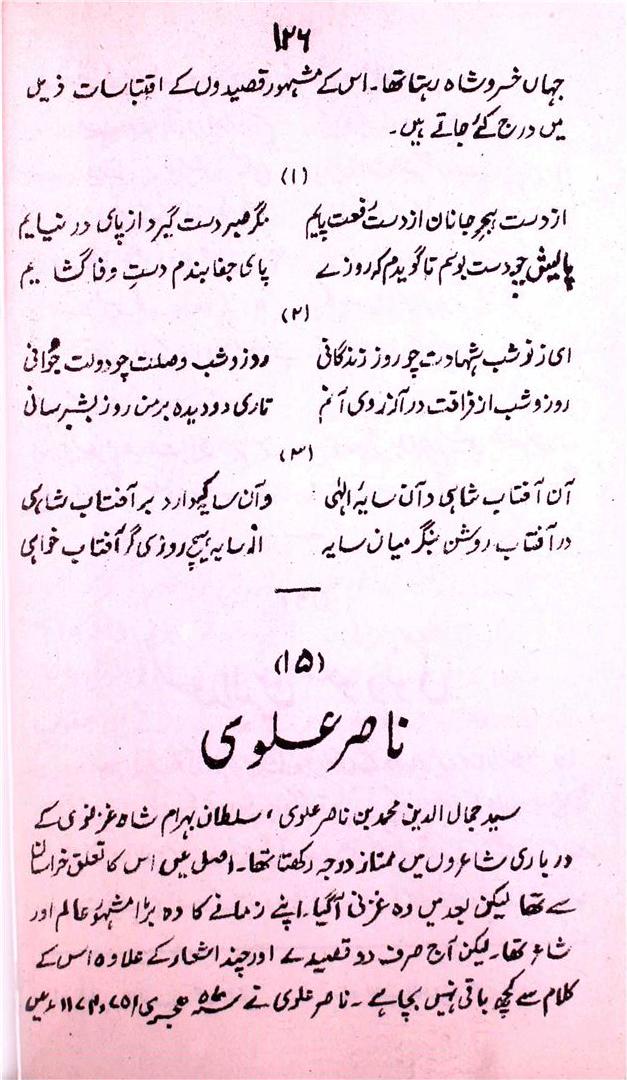 ۱۲۶
جہاں خسرو شاہ رہتا تھا۔ اس کے مشہور قصیدوں کے اقتباسات ذیل
میں درج کئے جاتے ہیں۔
(۱)
از دست ہجر جانان از دست رفعت پایم    گر صبر دست گیرد از پای در نیایم
پایش چو دست بوسم تا گویدم کہ روزے    پای جفا بندم دستِ وفا گشایم
(۲)
ای از تو شب شہادت چو روز زندگانی    روز و شب وصلت چو دولت جوانی
روز و شب از فراقت در آرزوی آنم    تاری دو دیده بر من روز بشب رسانی
(۳)
آن آفتاب شاہی و آن سایۂ الٰہی    و آن سایہ دارد بر آفتاب شاہی
در آفتاب روشن بنگر میان سایہ    از سایہ ہیچ روزی گر آفتاب خواہی
(۱۵)
ناصر علوی
سید جمال الدین محمد بن ناصر علوی، سلطان بہرام شاہ غزنوی کے
درباری شاعروں میں ممتاز درجہ رکھتا تھا۔ اصل میں اس کا تعلق خراسان
سے تھا لیکن بعد میں وہ غزنی آ گیا۔ اپنے زمانے کا وہ بڑا مشہور عالم اور
شاعر تھا۔ لیکن آج صرف دو قصیدے اور چند اشعار کے علاوہ اس کے
کلام سے کچھ باقی نہیں بچا ہے۔ ناصر علوی نے ہجری میں